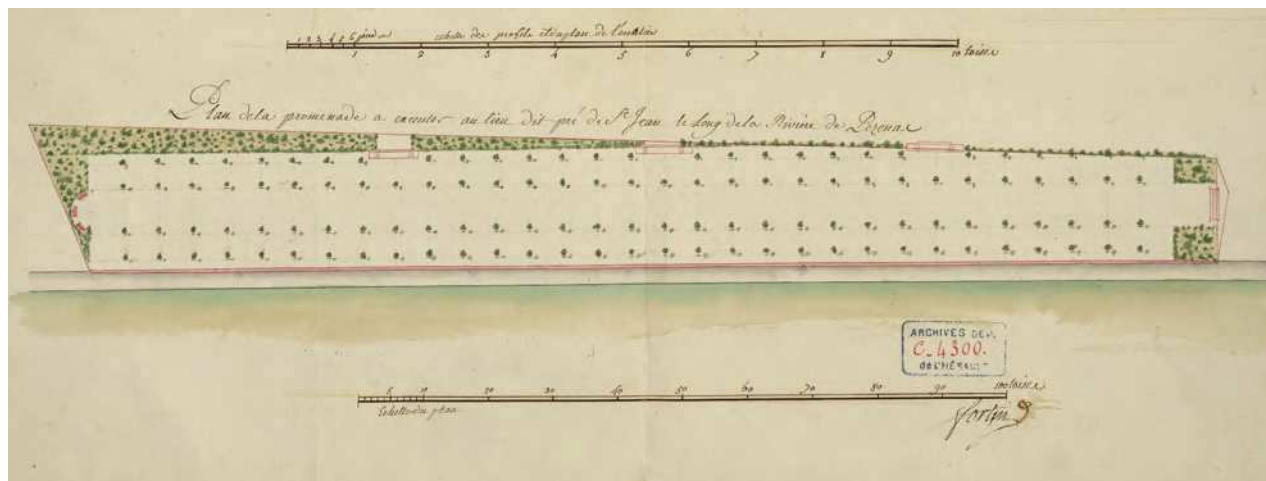 1 2 3 4 5 6 pieds echelle des profils et du plan de l'
1 2 3 4 5 6 7 8 9 10 toises
Plan de la promenade a executer au lieu dit pré de St Jean le Long de la Riviere de Pezenac
ARCHIVES DEP.
C. 4300.
DE L'HÉRAULT
5 10 20 30 40 50 60 70 80 90 100 toises
Echelle du plan